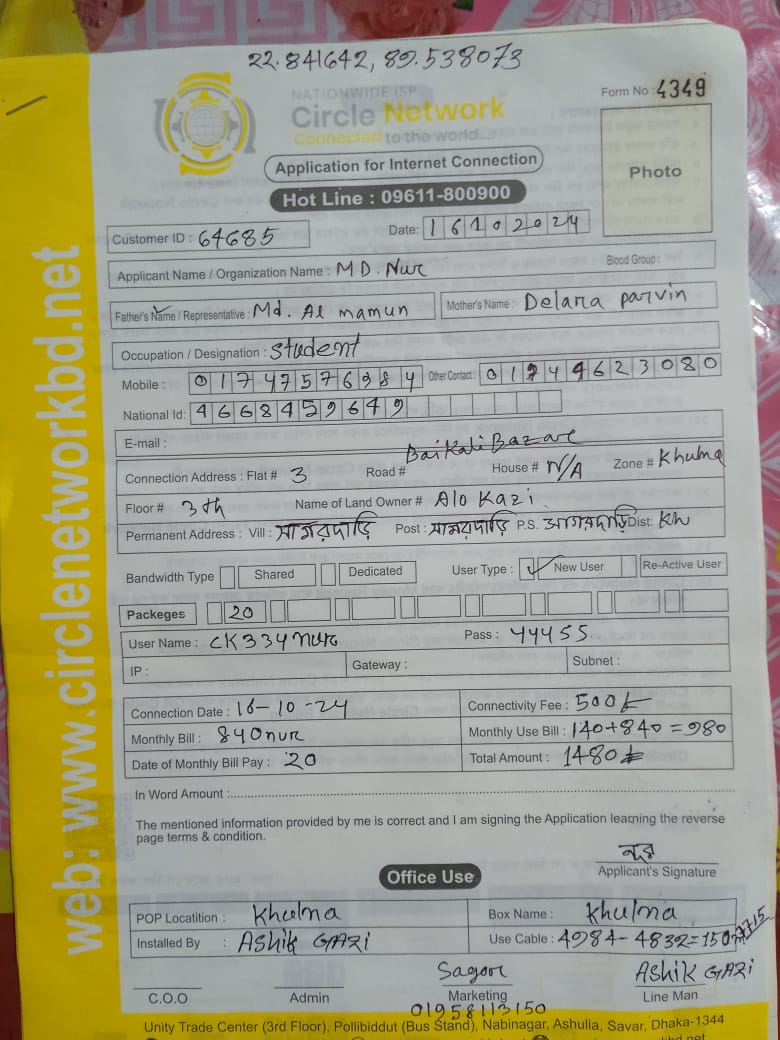 22.841642, 89.538073
NATIONWIDE ISP
Circle Network
Connected to the world...
Form No : 4349
Application for Internet Connection
Photo
Hot Line : 09611-800900
Customer ID : 64685 Date: 16102024
Applicant Name / Organization Name : MD. Nur Blood Group :
Father's Name / Representative : Md. Al mamun Mother's Name : Delara parvin
Occupation / Designation : Student
Mobile : 01747576984 Other Contact : 01944623080
National Id: 4668459649
E-mail :
BaiKali Bazare
Connection Address : Flat # 3 Road # House # N/A Zone # Khulna
Floor # 3th Name of Land Owner # Alo Kazi
Permanent Address : Vill : সাগরদাড়ি Post : সাগরদাড়ি P.S. Dist: Kh
Bandwidth Type Shared Dedicated User Type : ✓ New User Re-Active User
Packeges 20
User Name : CK334nur Pass : 44455
IP : Gateway : Subnet :
Connection Date : 16-10-24 Connectivity Fee : 500/-
Monthly Bill : 840nur Monthly Use Bill : 140+840=980
Date of Monthly Bill Pay : 20 Total Amount : 1480/-
In Word Amount :
The mentioned information provided by me is correct and I am signing the Application learning the reverse
page terms & condition.
নূর
Applicant's Signature
Office Use
POP Locatition : Khulna Box Name : Khulna
Installed By : Ashik GAZi Use Cable : 4984-4832=150
Sagor ASHiK GAZi
C.O.O Admin Marketing Line Man
01958113150
Unity Trade Center (3rd Floor), Pollibiddut (Bus Stand), Nabinagar, Ashulia, Savar, Dhaka-1344
web: www.circlenetworkbd.net